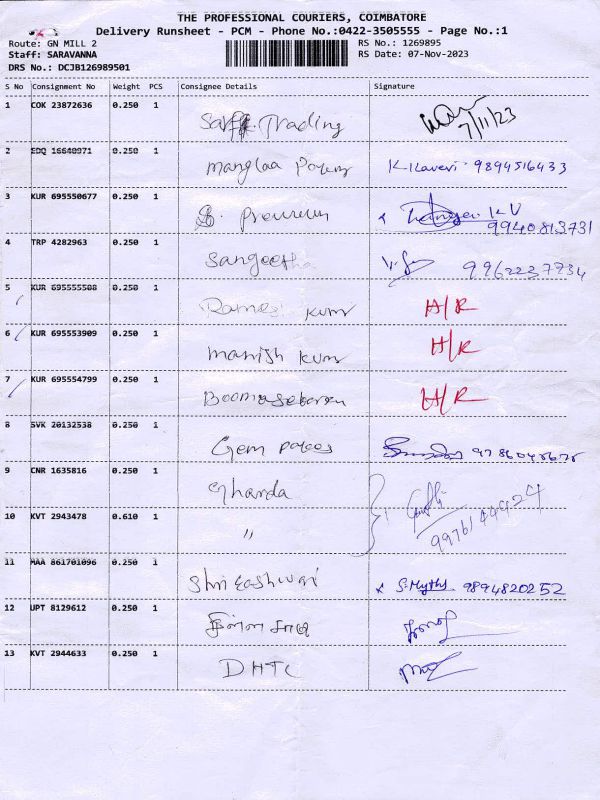 THE PROFESSIONAL COURIERS, COIMBATORE
Delivery Runsheet - PCM - Phone No.:0422-3505555 - Page No.:1
Route: GN MILL 2
Staff: SARAVANNA
DRS No.: DCJB126989501
RS No.: 1269895
RS Date: 07-Nov-2023
S No Consignment No Weight PCS Consignee Details Signature
1 COK 23872636 0.250 1 Trading 7/11/23
2 EDQ 16640971 0.250 1 Manglaa K. Kaveri 9894516433
3 KUR 695550677 0.250 1 K V 9940813731
4 TRP 4282963 0.250 1 Sangeetha 9962237934
5 KUR 695555508 0.250 1 Ramesh Kumr H/R
6 KUR 695553909 0.250 1 Manish Kumr H/R
7 KUR 695554799 0.250 1 H/R
8 SVK 20132538 0.250 1 Gem
9 CNR 1635816 0.250 1 Gharda
10 KVT 2943478 0.610 1 " 9976144924
11 MAA 861701096 0.250 1 Shri eashwari 9894820252
12 UPT 8129612 0.250 1
13 KVT 2944633 0.250 1 DHTC